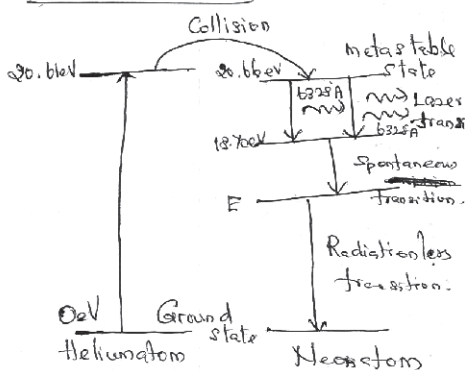 Collision
20.61eV
20.66eV
metastable
state
6328Å
Laser
transi
6328Å
18.70eV
Spontaneous
transition.
E
Radiationless
transition.
0eV
Ground
state
Heliumatom
Neonatom